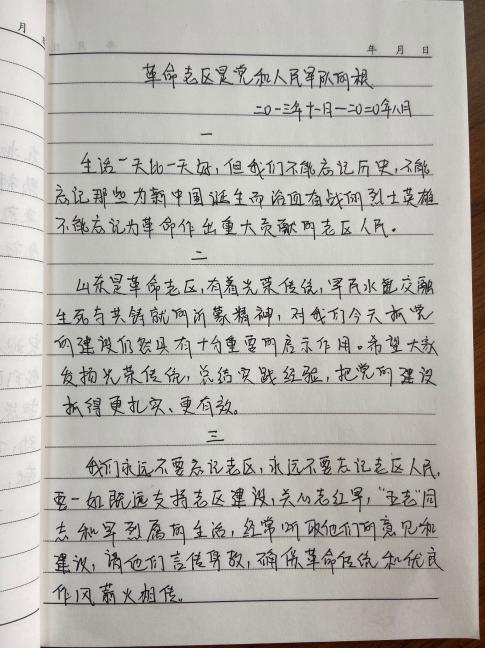 月
年 月 日
革命老区是党和人民军队的根
二〇一三年十一月—二〇二〇年八月
一
生活一天比一天好，但我们不能忘记历史，不能
忘记那些为新中国诞生而浴血奋战的烈士英雄
不能忘记为革命作出重大贡献的老区人民。
二
山东是革命老区，有着光荣传统，军民水乳交融
生死与共铸就的沂蒙精神，对我们今天抓党
的建设仍然具有十分重要的启示作用。希望大家
发扬光荣传统，总结实践经验，把党的建设
抓得更扎实、更有效。
三
我们永远不要忘记老区，永远不要忘记老区人民，
要一如既远支持老区建设，关心老红军，“五老”同
志和军烈属的生活，经常听取他们的意见和
建议，请他们言传身教，确保革命传统和优良
作风薪火相传。